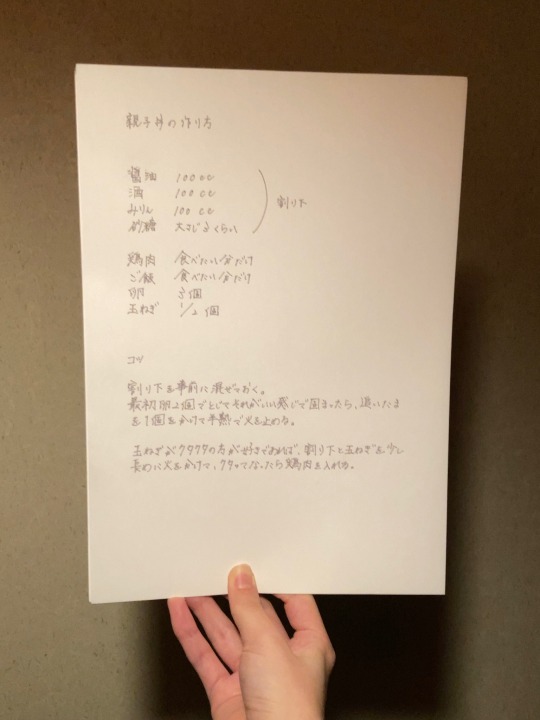 親子丼の作り方
醤油 100cc
酒 100cc
みりん 100cc
砂糖 大さじ3くらい
割り下
鶏肉 食べたい分だけ
ご飯 食べたい分だけ
卵 3個
玉ねぎ 1/2個
コツ
割り下を事前に混ぜておく。
最初卵2個でとじてそれがいい感じで固まったら、追いたま
を1個をかけて半熟で火を止める。
玉ねぎがクタクタの方が好きであれば、割り下と玉ねぎを少し
長めに火をかけて、クタってなったら鶏肉を入れる。